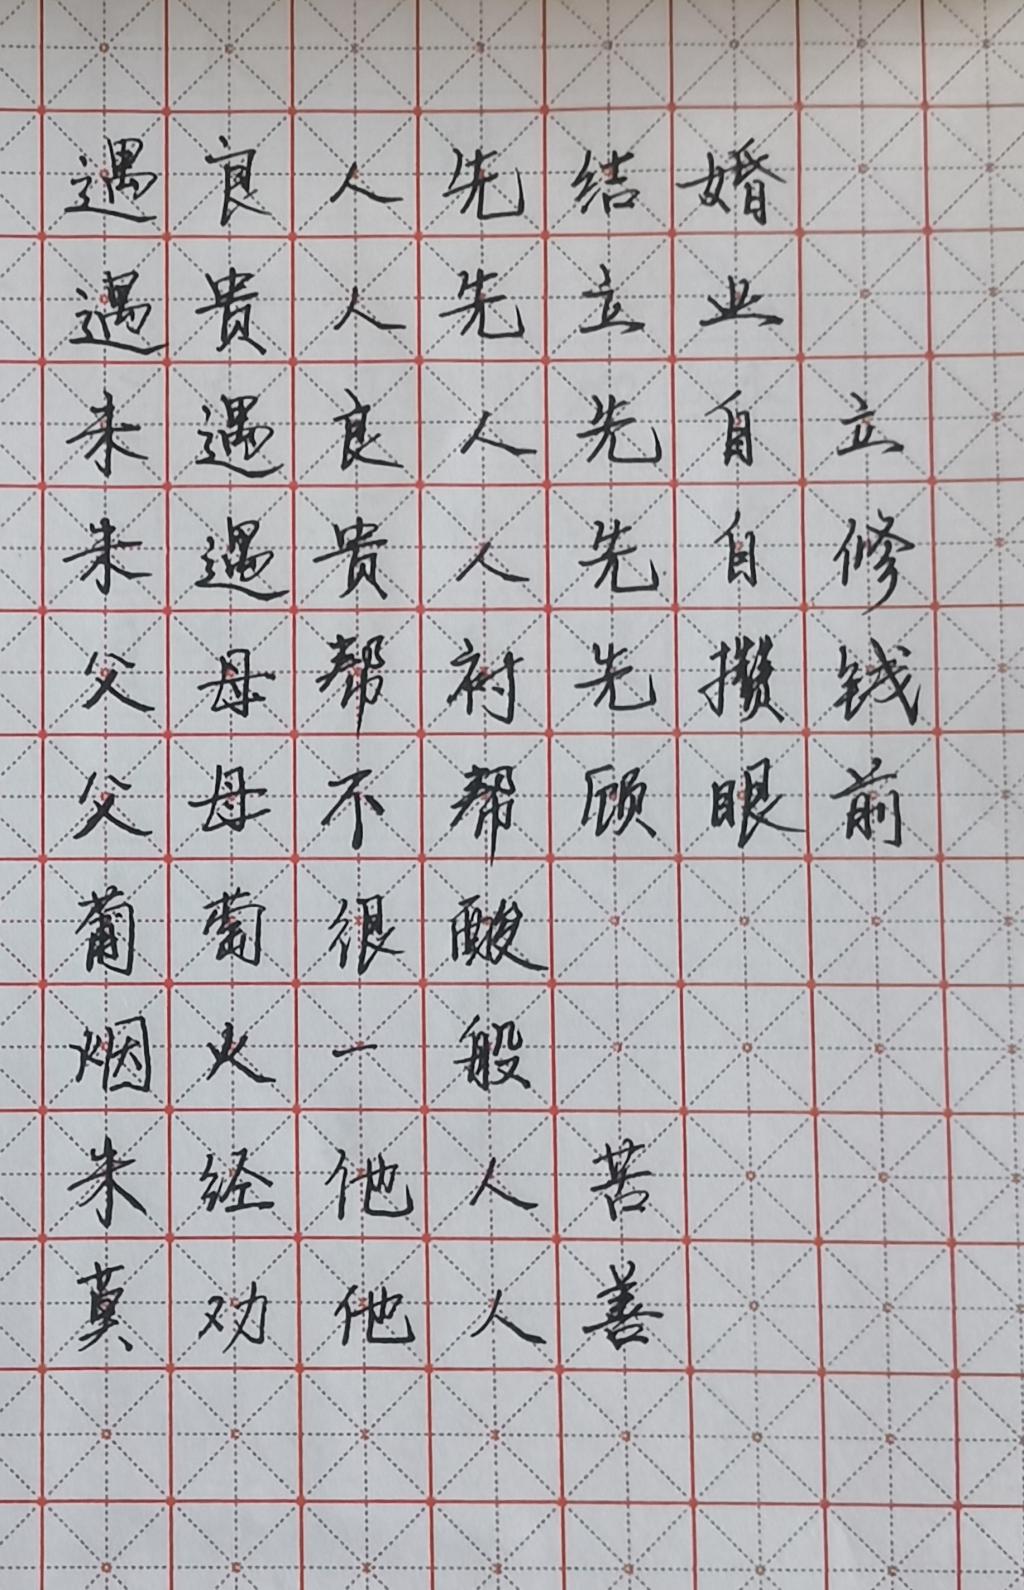 遇良人先结婚
遇贵人先立业
未遇良人先自立
未遇贵人先自修
父母帮衬先攒钱
父母不帮顾眼前
葡萄很酸
烟火一般
未经他人苦
莫劝他人善